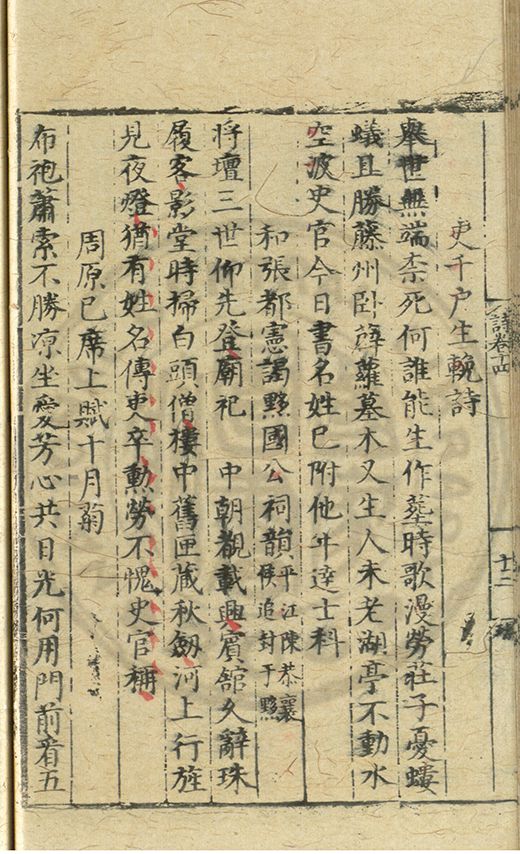 史千户生輓詩
舉世無端柰死何誰能生作薤時歌漫勞莊子憂螻
蟻且勝藤州卧薜蘿墓木又生人未老湖亭不動水
空波史官今日書名姓已附他年達士科
和張都憲謁黟國公祠韻平江陳恭襄侯追封于黟
將壇三世仰先登廟祀 中朝觀載興賓舘久辭珠
履客影堂時掃白頭僧樓中舊匣藏秋劔河上行旌
見夜燈猶有姓名傳吏卒勲勞不愧史官稱
周原已席上賦十月菊
布袍蕭索不勝凉坐愛芳心共日光何用門前看五
詩卷十四
十二